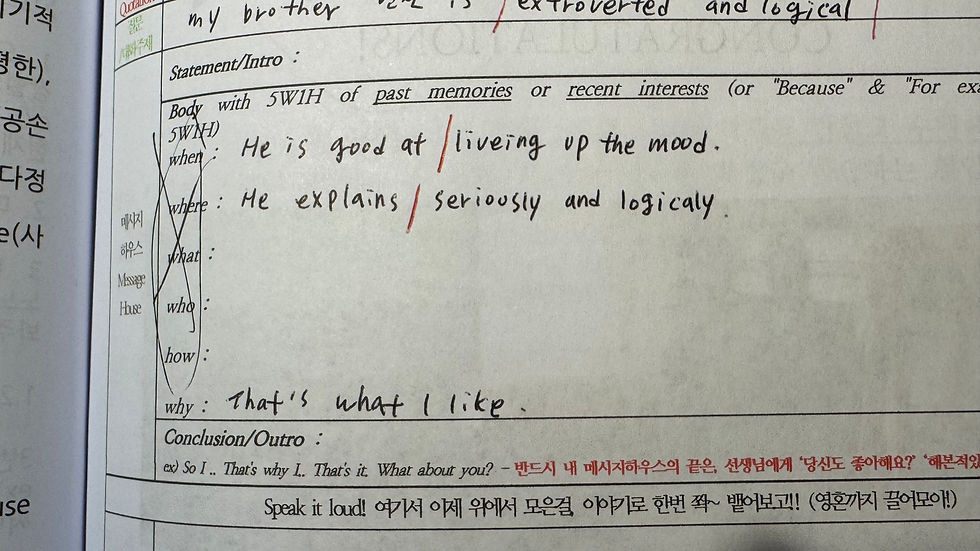 my brother is / extroverted and logical
질문
기적
Statement/Intro :
평한),
Body with 5W1H of past memories or recent interests (or "Because" & "For exa
5W1H)
공손
when : He is good at / liveing up the mood.
다정
where : He explains / seriously and logicaly.
메시지
e(사
하우스
what :
Message
House
who :
how :
why : That's what I like.
Conclusion/Outro :
ex) So I .. That's why I.. That's it. What about you? - 반드시 내 메시지하우스의 끝은, 선생님에게 '당신도 좋아해요?' '해본적있
use
Speak it loud! 여기서 이제 위에서 모은걸, 이야기로 한번 쫙~ 뱉어보고!! (영혼까지 끌어모아!)